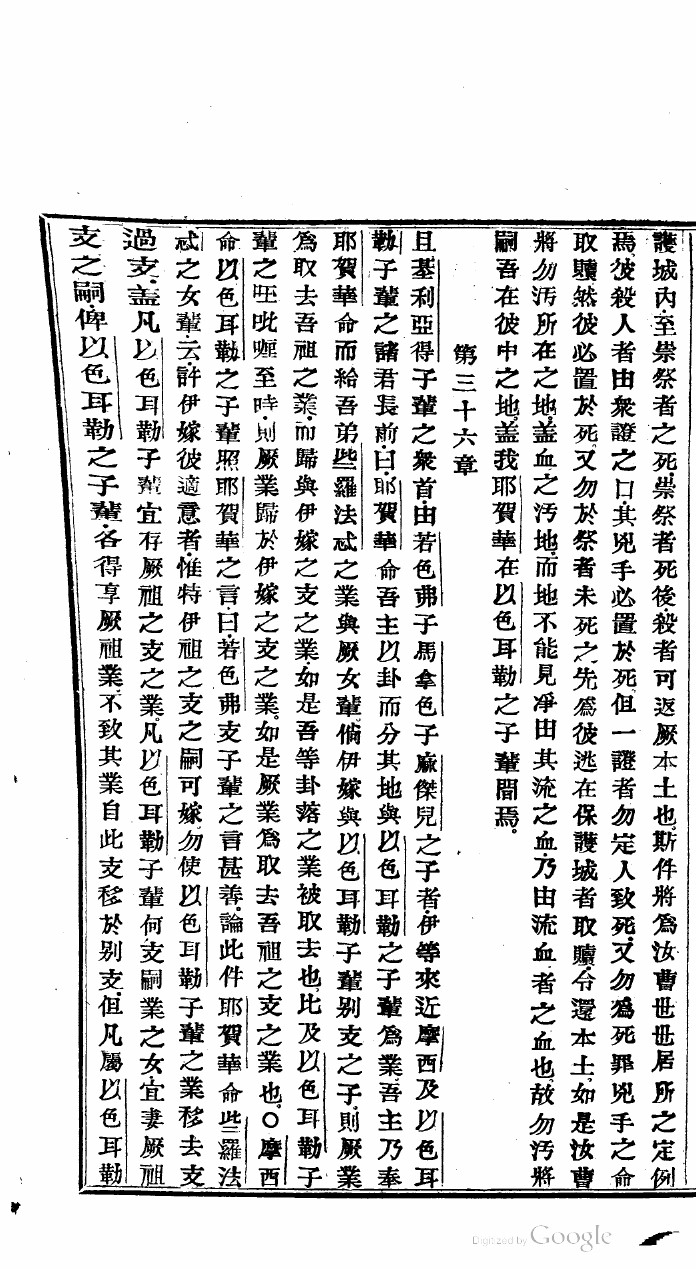 護城內·至祟祭者之死祟祭者死後·殺者可返厥本土也斯件將爲汝曹世世居所之定例
焉彼殺人者由衆證之口·其兇手必置於死但一證者勿定人致死又勿爲死罪兇手之命
取贖然彼必置於死又勿於祭者未死之先爲彼逃在保護城者取贖令還本土如是汝曹
將勿汚所在之地蓋血之汚地·而地不能見凈由其流之血·乃由流血者之血也故勿汚將
嗣吾在彼中之地·蓋我耶賀華在以色耳勒之子輩間焉。
第三十六章
且基利亞得子輩之衆首·由若色弗子馬拿色子廉傑兒之子者·伊等來近摩西及以色耳
勒子輩之諸君長前·曰·耶賀華命吾主以卦而分其地與以色耳勒之子輩爲業·吾主乃奉
耶賀華命而給吾弟些羅法忒之業與厥女輩倘伊嫁與以色耳勒子輩别支之子·則厥業
爲取去吾祖之業·而歸與伊嫁之支之業·如是吾等卦落之業被取去也比及以色耳勒子
輩之㕵呲喱至時·則厥業歸於伊嫁之支之業。如是厥業爲取去吾祖之支之業也。○摩西
命以色耳勒之子輩照耶賀華之言·曰·若色弗支子輩之言甚善·論此件耶賀華命些羅法
忒之女輩·云許伊嫁彼適意者·惟特伊祖之支之嗣可嫁·勿使以色耳勒子輩之業移去支
過支·蓋凡以色耳勒子輩宜存厥祖之支之業。凡以色耳勒子輩何支嗣業之女·宜妻厥祖
支之嗣·俾以色耳勒之子輩·各得享厥祖業·不致其業自此支移於别支·但凡屬以色耳勒
Digitized by Google